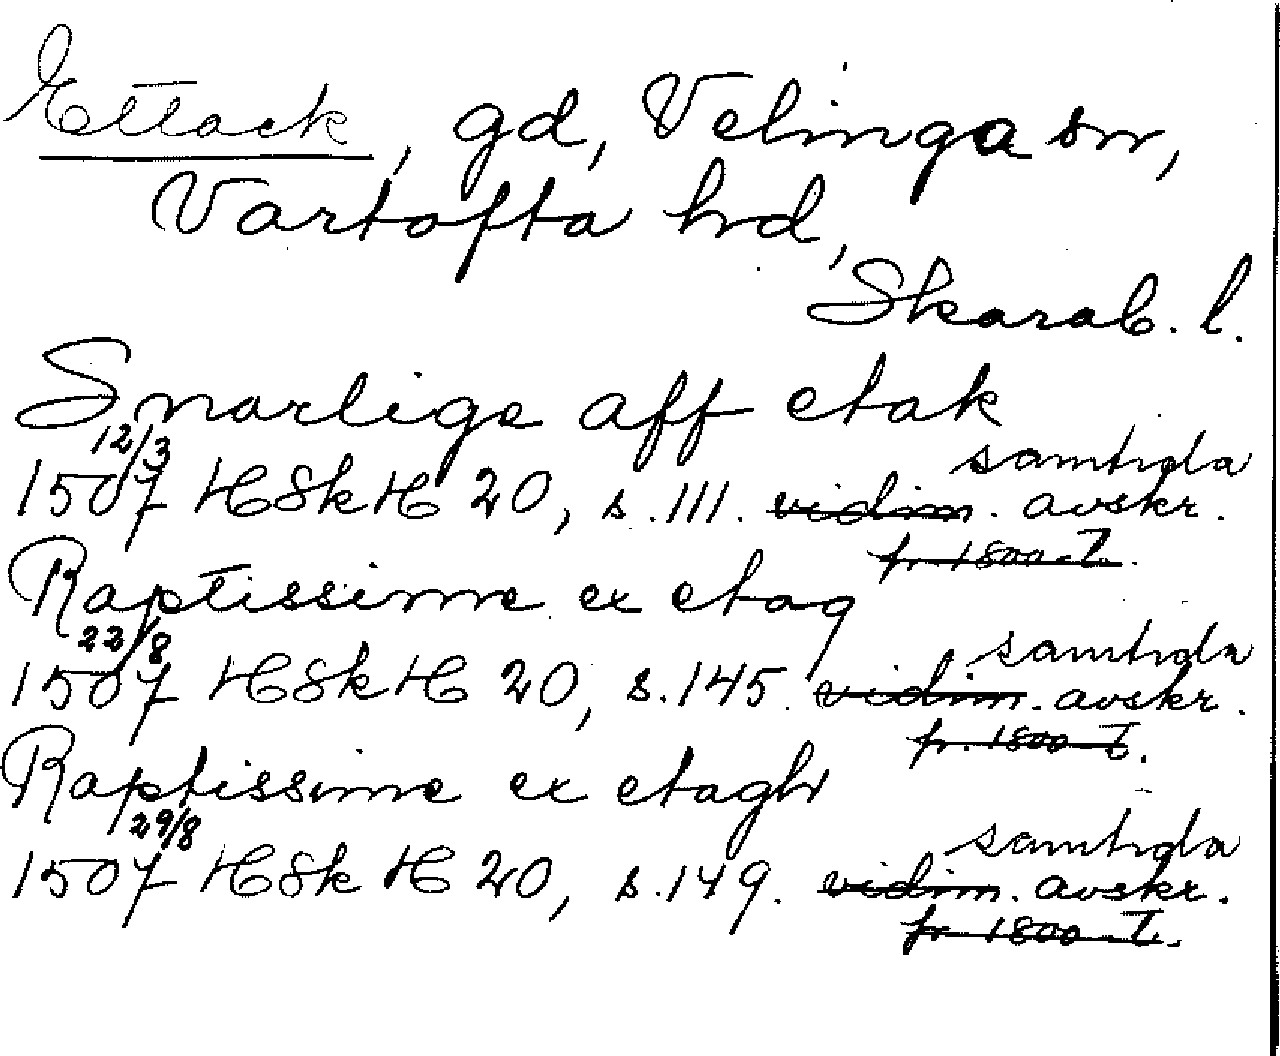 Ettack, gd, Velinga sn,
Vartofta hd,
Skarab. l.
Snarlige aff etak
12/3 samtida
1507 HSkH 20, s. 111. vidim. avskr.
fr. 1800-T.
Raptissime ex etag
22/8 samtida
1507 HSkH 20, s. 145. vidim. avskr.
fr. 1800-T.
Raptissime ex etagh
29/8 samtida
1507 HSkH 20, s. 149. vidim. avskr.
fr. 1800-T.